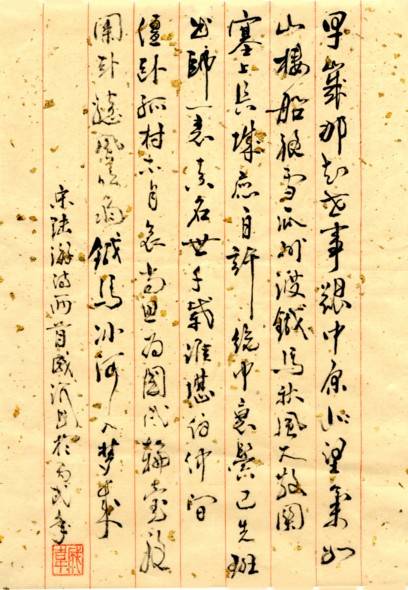 早歲那知世事艱中原北望氣如
山樓船夜雪瓜州渡鐵馬秋風大散關
塞上長城自許鏡中衰鬢已先斑
出師一表真名世千載誰堪伯仲間
僵卧孤村不自哀尚思為國戍輪臺夜
闌卧聽風吹雨鐵馬冰河入夢來
宋陸游詩兩首